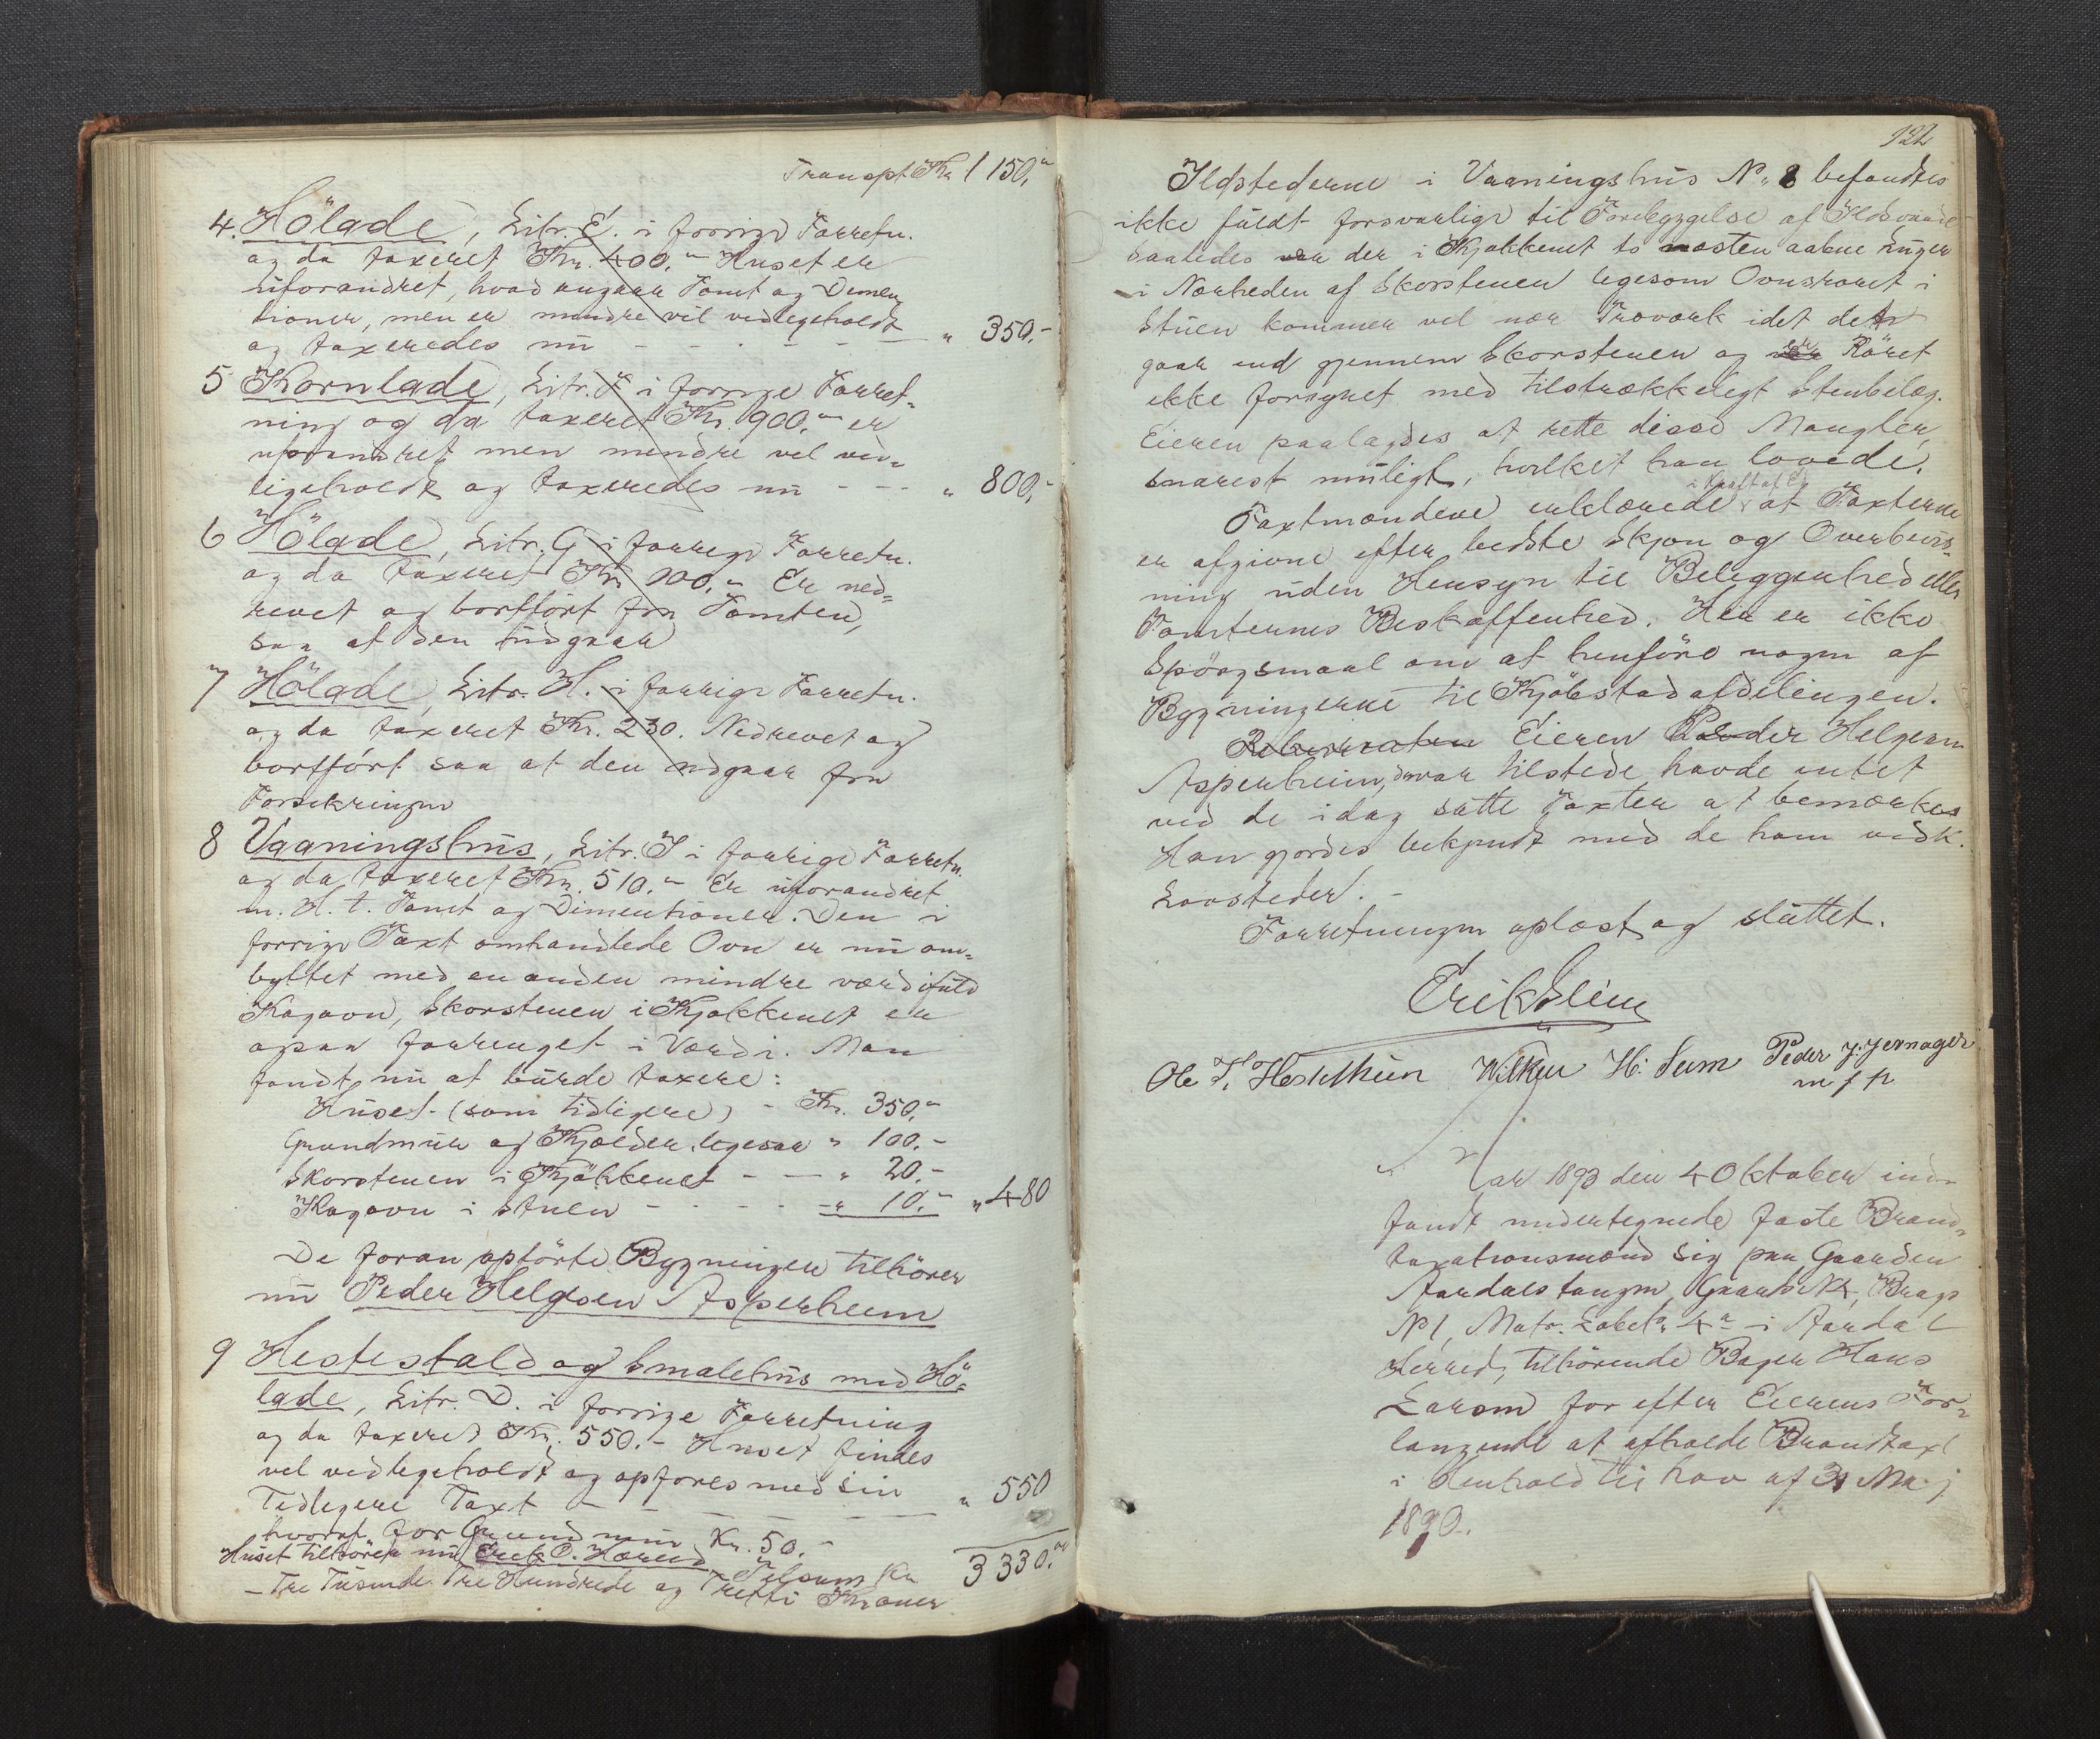 Transpt Kr 1150,"
4. Hölade, Litr. E. i forrige Forretn.
og da taxeret Kr. 400." Huset er
uforandret, hvad angaar Tomt og Dimen
tioner, men er mindre vel vedligeholdt
og taxeredes nu - - - - - " 350.-
5 Kornlade, Litr. F i forrige Forret-
ning og da taxeret Kr. 900." er
uforandret men mindre vel ved-
ligeholdt og taxeredes nu - - - " 800,-
6 Hölade, Litr. G i forrige Forretn.
og da taxeret Kr 100." Er ned-
revet og bortfört fra Tomten,
saa at den udgaar
7 Hölade, Litr. H. i forrige Forretn.
og da taxeret Kr. 230. Nedrevet og
bortfört saa at den udgaar fra
Forsikringen
8 Vaaningshus, Litr. I i forrige Forretn.
og da taxeret Kr. 510." Er uforandret
m. H. t. Tomt og Dimentioner. Den i
forrige Taxt omhandlede Ovn er nu om-
byttet med en anden mindre værdifuld
Kogovn, Skorstenen i Kjøkkenet er
ogsaa forringet i Værdi. Man
fandt nu at burde taxere:
Huset (som tidligere) - Kr. 350,"
Grundmur og Kjælder, legesaa " 100.-
Skorstenen i Kjøkkenet - - " 20.-
Kogovn i Stuen - - - - " 10." " 480
De foran opförte Bygninger tilhörer
nu Peder Helgesen Asperheim
9 Hestestald og Smalehus med Hö-
lade, Litr. D. i forrige Forretning
og da taxeret Kr. 550.- Huset findes
vel vedligeholdt og opføres med sin
Tidligere Taxt - - - - " 550
hvoraf for Grundmur Kr. 50.-
Huset tilhörer nu Erik O. Tilsam Kr 3330."
- Tre Tusinde Tre Hundrede og Tretti Kroner
122
Ildstederne i Vaaningshus No 8 befandtes
ikke fuldt forsvarlige til Forebyggelse af Ildsvaade
Saaledes var der i Kjøkkenet to næsten aabne Luger
i Nærheden af Skorstenen legesom Ovnsröret i
Stuen kommer vel nær Træværk idet det
gaar ind gjennem Skorstenen og er Röret
ikke forsynet med tilstrækkeligt Stenbelæg.
Eieren paalagdes at rette disse Mangler
snarest muligt, hvilket han lovede.
Taxtmændene erklærede i Kraft af Ed at Taxterne
er afgivne efter bedste Skjøn og Overbevis-
ning uden Hensyn til Beliggenhed eller
Tomternes Beskaffenhed. Her er ikke
Spörgsmaal om at henföre nogen af
Bygningerne til Kjöbstadafdelingen.
Rekvirenten Eieren Peder Helgesen
Asperheim, der var tilstede havde intet
ved de idag satte Taxter at bemærke
Han gjordes bekjendt med de ham vedk.
Lovsteder. -
Forretningen oplæst og sluttet.
Erik Slim
Ole T. Hestethun Wilken H: Sem Peder J: Jernager
m f p
Aar 1893 den 4 Oktober ind-
fandt undertegnede faste Brand-
taxationsmænd sig paa Gaarden
Aardalstangen, Gaards N 4, Brugs
N 1, Matr. Löbeno 4a i Aardal
Herred, tilhörende Bager Hans
Larsen for efter Eierens For-
langende at afholde Brandtaxt
i Henhold til Lov af 31 Maj
1890.